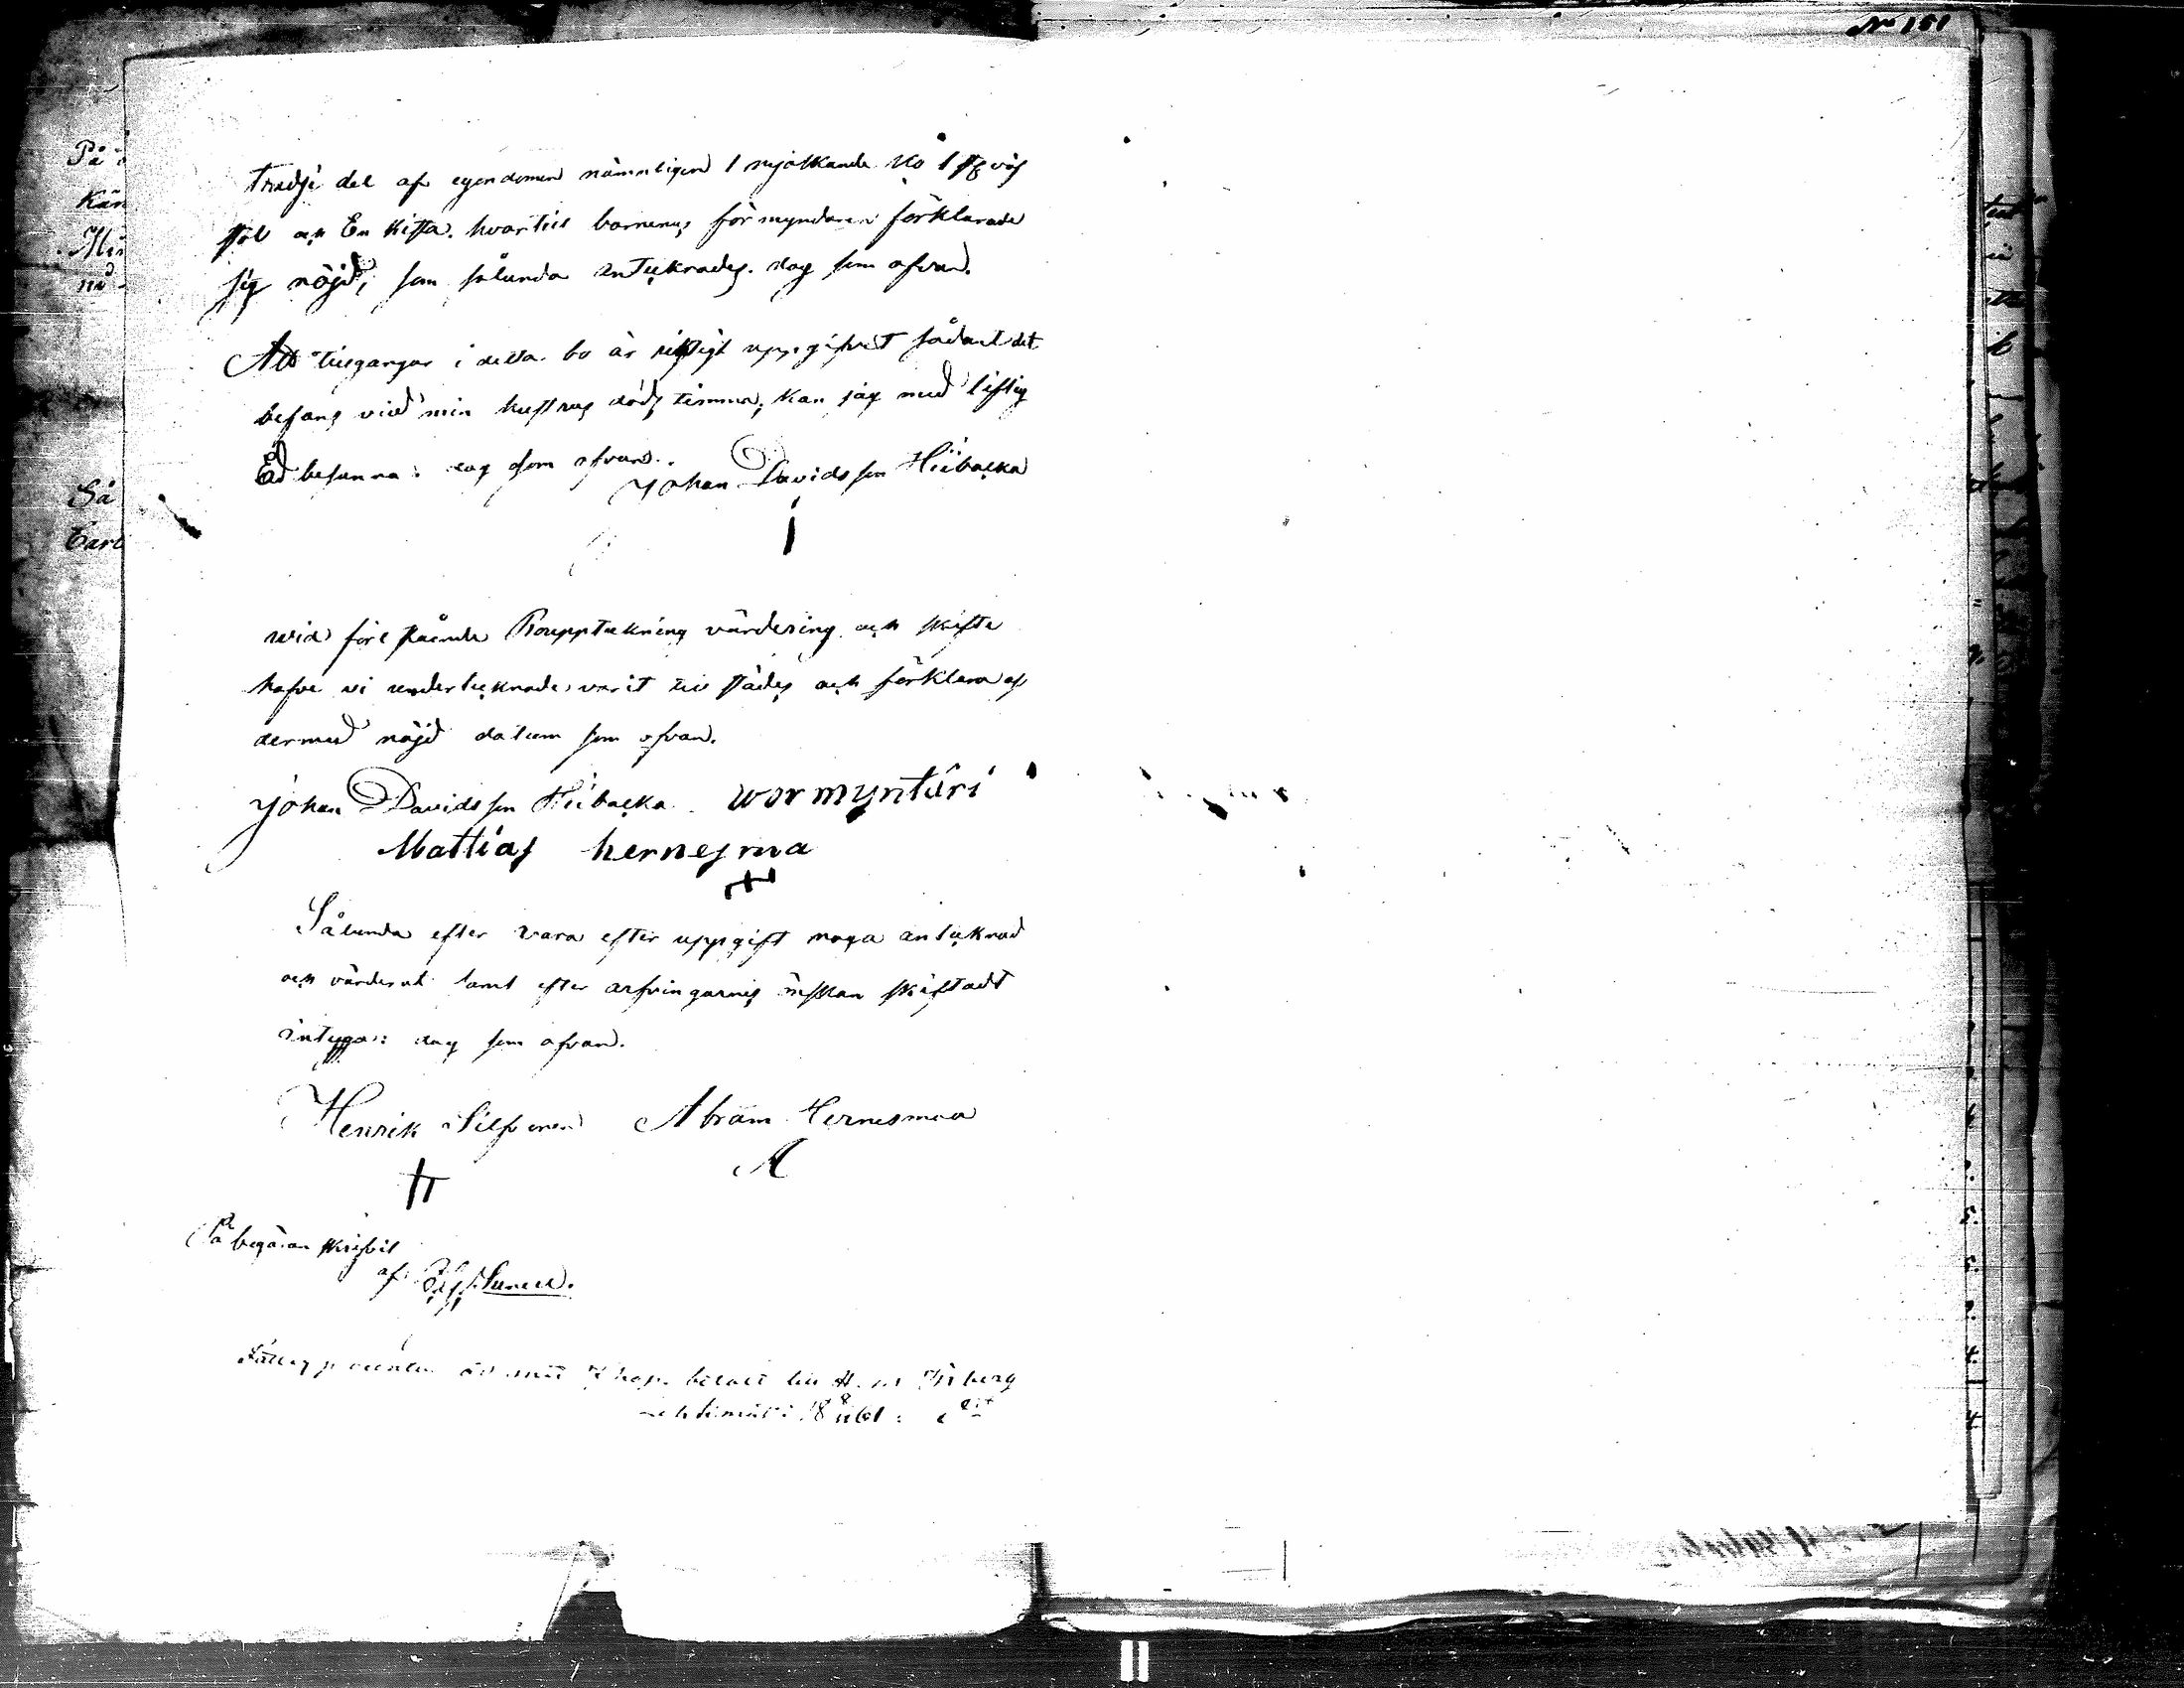 No 151
Tredje del af egendomen nämnligen 1 mjölkande ko 1 st väf
stol och En kista. hvartill barnenes förmyndaren förklarade
sig nöjd, som sålunda anteknades. dag som ofvan.
Att tillgangar i detta bo är riktigt uppgifvet sådant det
befans vid min hustrus döds timma, kan jag med liflig
Ed besanna: dag som ofvan.
Johan Davidsson Hiibacka
wid förestående Bouppteckning värdering och skifte
hafve vi underteknade varit till städes och förklara os
dermed nöjd datum som ofvan.
Johan Davidsson Hiibacka wormyntäri
Mattias hernesma
Sålunda efter vara efter uppgift noga anteknad
och värderat samt efter arfvingarnes önskan skiftadt
intygar: dag som ofvan.
Henrik Silfvenen Abram Hernesmaa
A
På begäran skrifvit
af
Fattig procenten
På
Kän
nd
Så
Carl